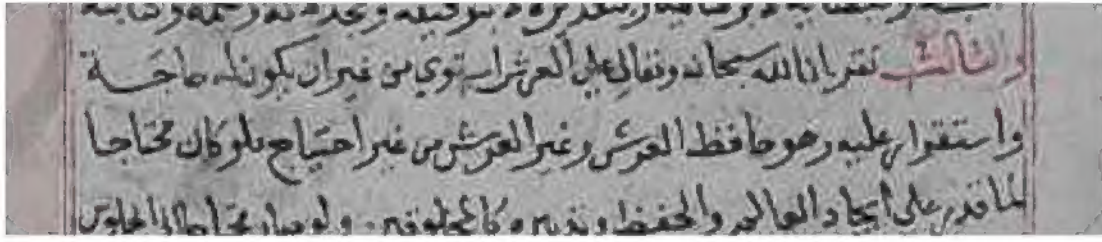 والثالث نقر بان الله سبحانه وتعالى على العرش استوى من غير ان يكون له حاجة
واستقرار عليه وهو حافظ العرش وغير العرش من غير احتياج فلو كان محتاجا
لما قدر على ايجاد العالم والحفظ وتدبيره كالمخلوقين ولو صار محتاجا الى الجلوس